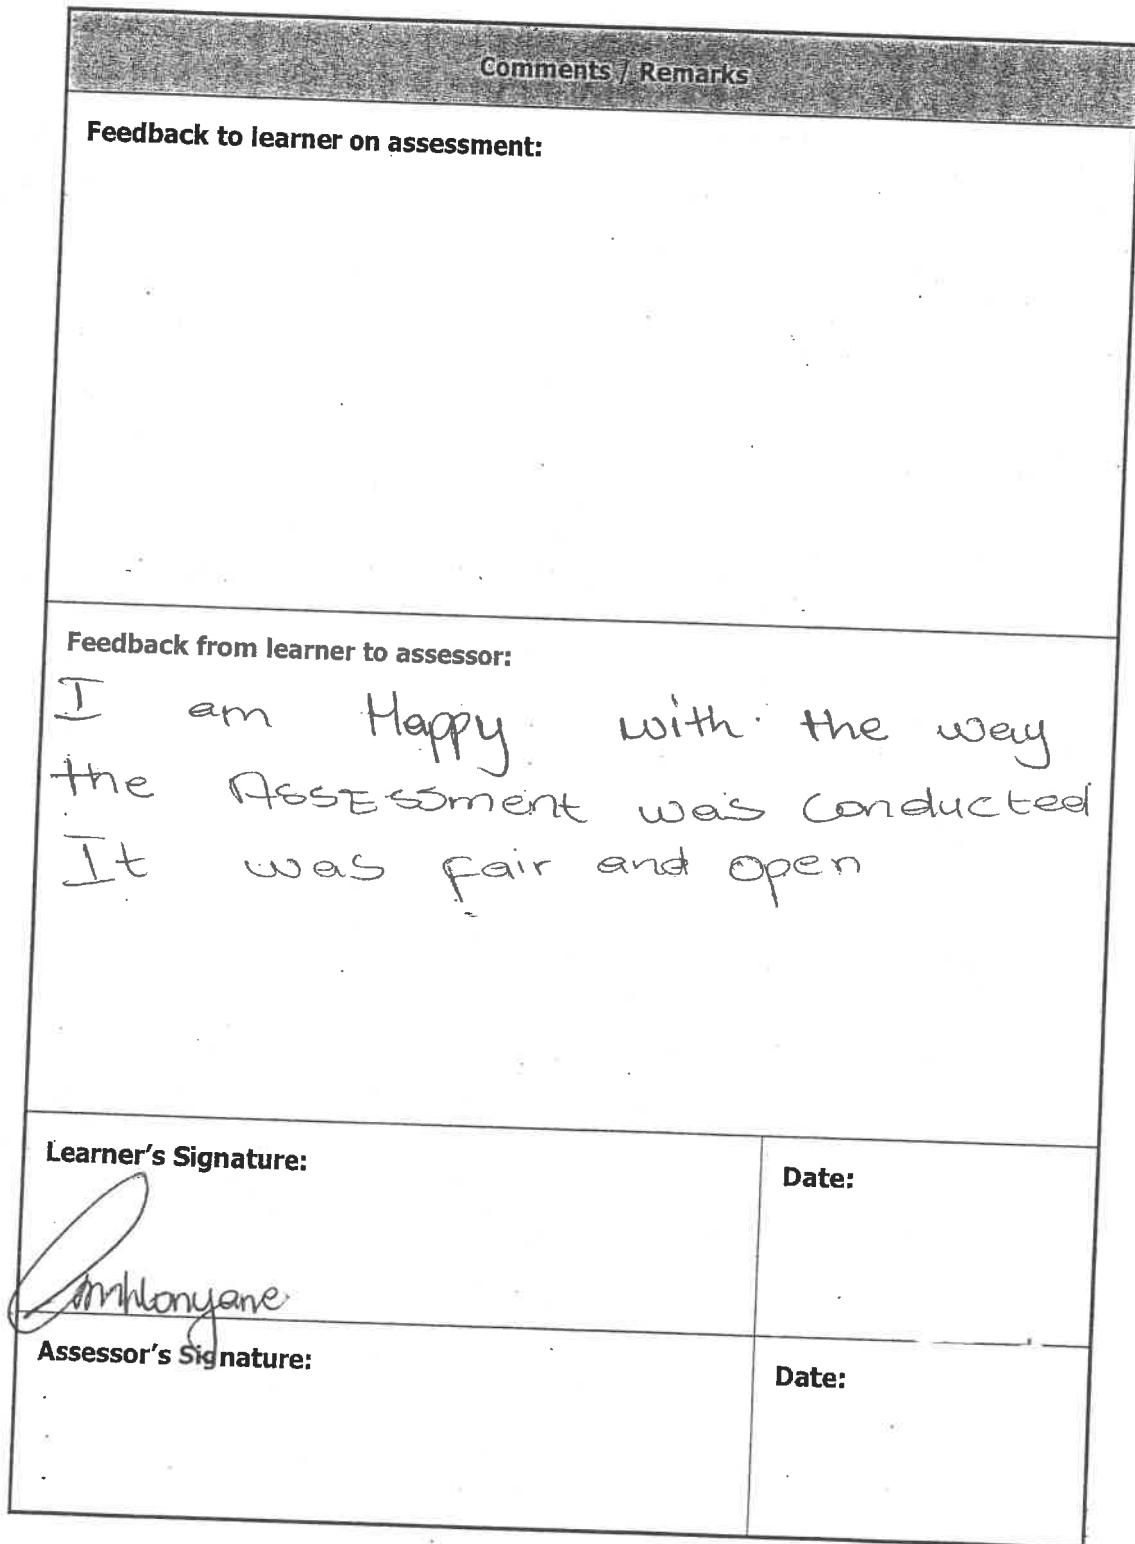 Comments / Remarks
Feedback to learner on assessment:
Feedback from learner to assessor:
I am Happy with the way
the Assessment was conducted
It was fair and open
Learner's Signature:
Date:
Assessor's Signature:
Date: